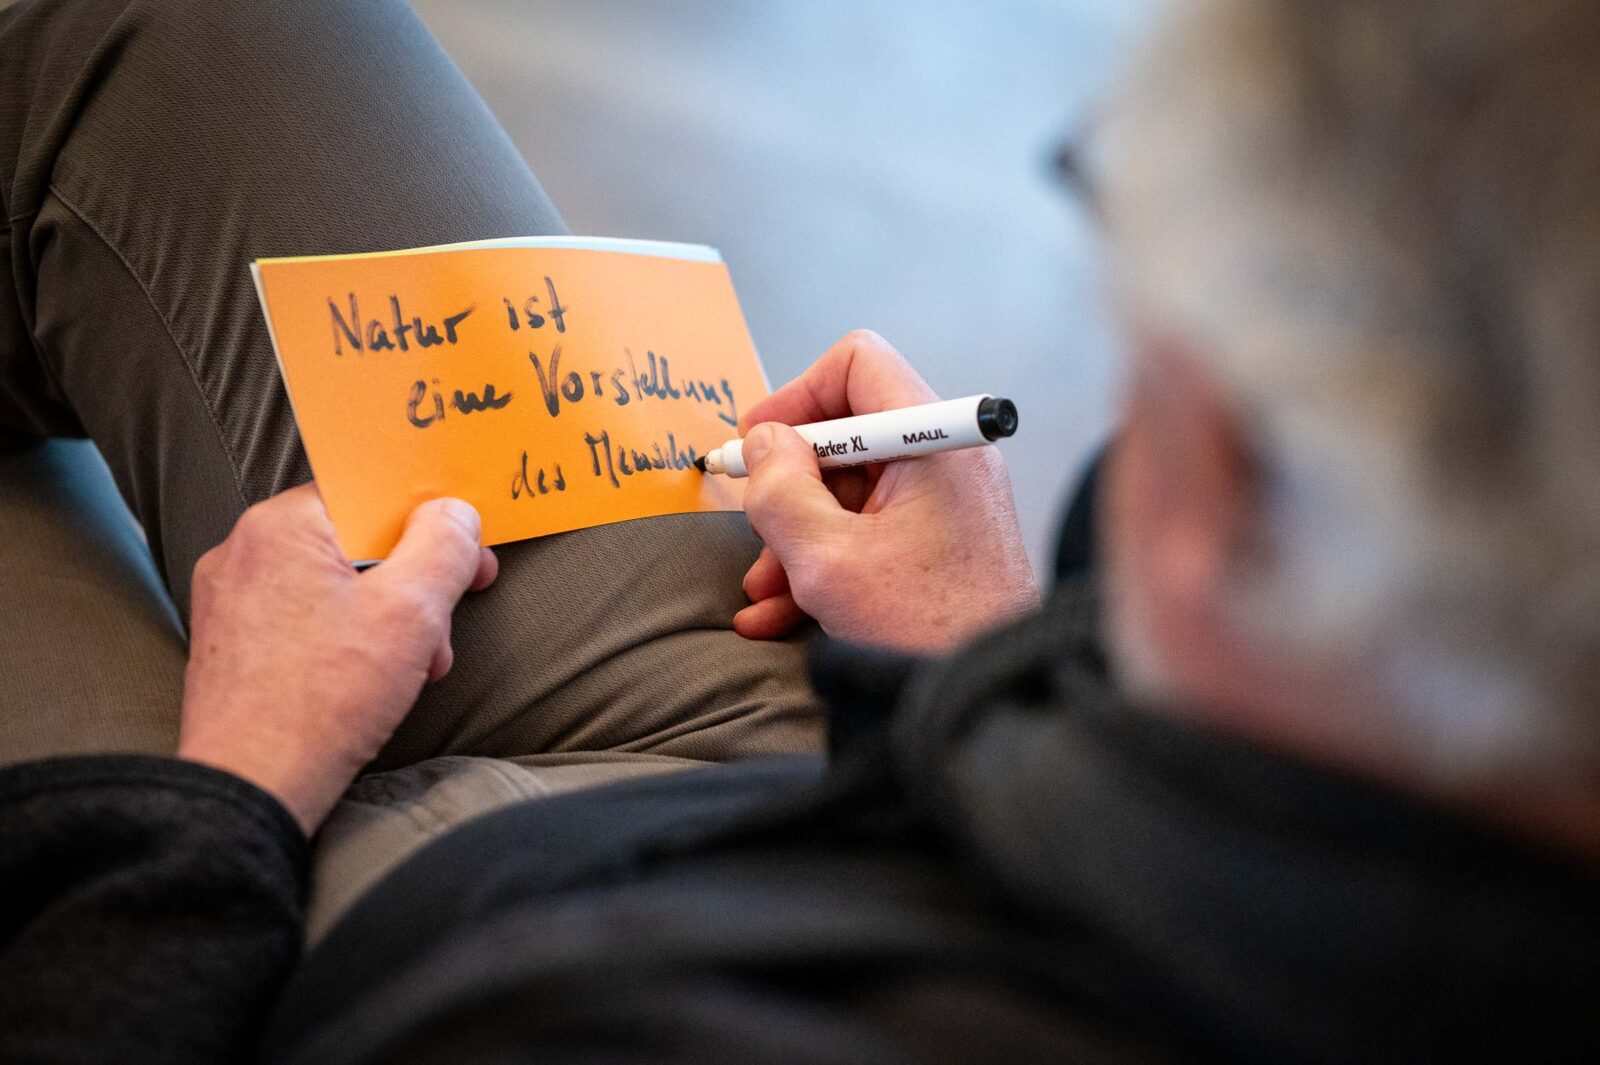 Natur ist
eine Vorstellung
des Mensche
Marker XL MAUL